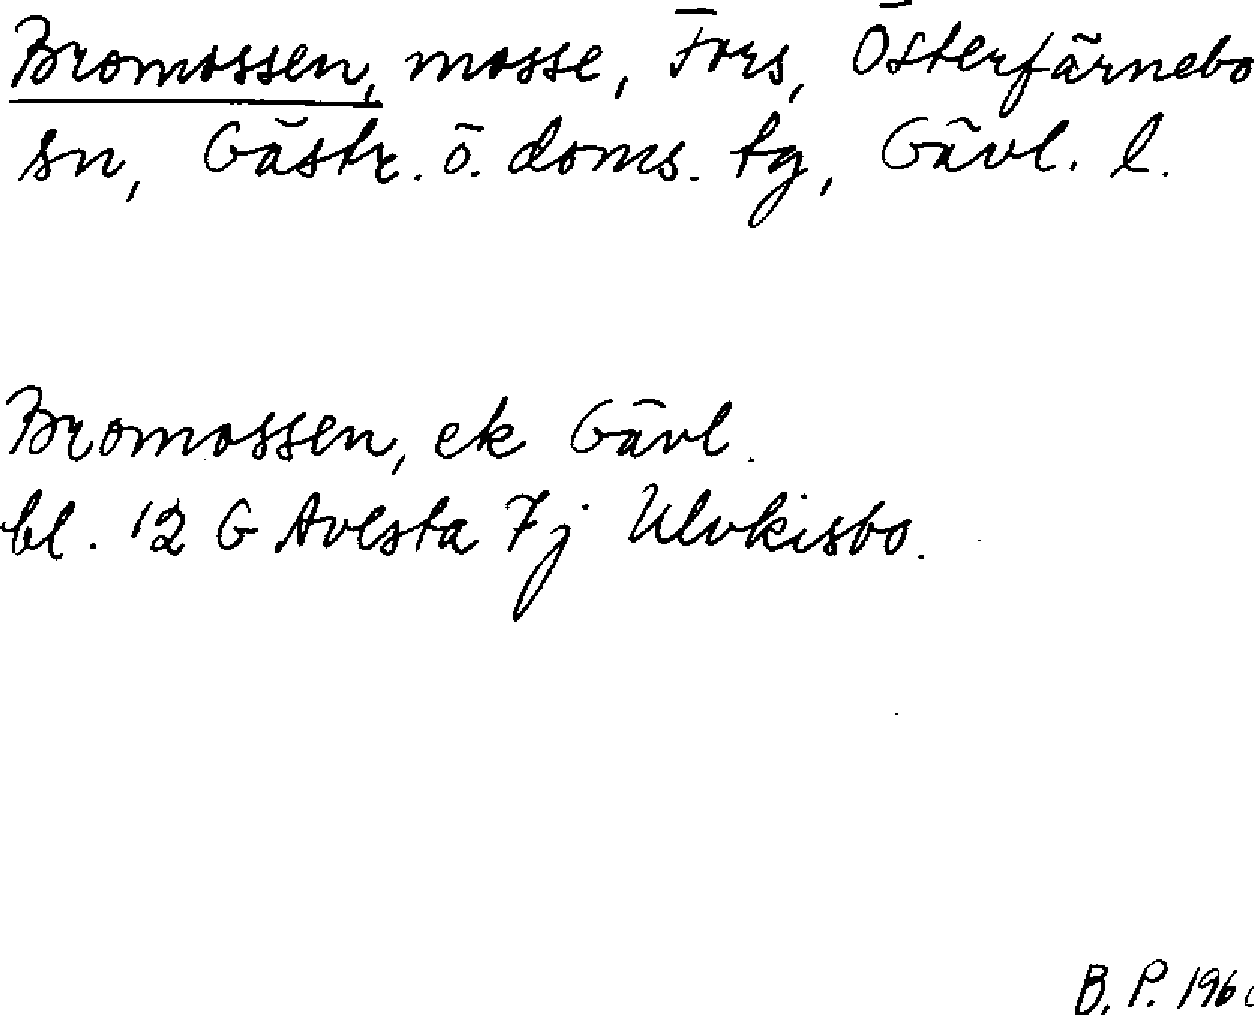 Bromossen, mosse, Fors, Österfärnebo
sn, Gästr. ö. doms. tg, Gävl. l.
Bromossen, ek Gävl.
bl. 12 G Avesta 7j Ulvkisbo.
B. P. 196